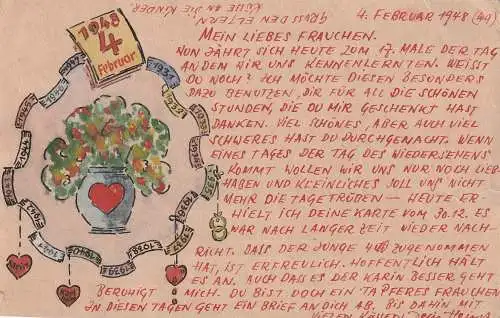 4. FEBRUAR 1948 (44)
GRUSS DEN ELTERN
KÜSSE AN DIE KINDER
1948
4
Februar
MEIN LIEBES FRAUCHEN.
NUN JÄHRT SICH HEUTE ZUM 17. MALE DER TAG
AN DEM WIR UNS KENNENLERNTEN. WEISST
DU NOCH? ICH MÖCHTE DIESEN BESONDERS
DAZU BENUTZEN, DIR FÜR ALL DIE SCHÖNEN
STUNDEN, DIE DU MIR GESCHENKT HAST
DANKEN. VIEL SCHÖNES, ABER AUCH VIEL
SCHWERES HAST DU DURCHGEMACHT. WENN
EINES TAGES DER TAG DES WIEDERSEHENS
KOMMT WOLLEN WIR UNS NUR NOCH LIEB
HABEN UND KLEINLICHES SOLL UNS NICHT
MEHR DIE TAGE TRÜBEN — HEUTE ER-
HIELT ICH DEINE KARTE VOM 30.12. ES
WAR NACH LANGER ZEIT WIEDER NACH-
RICHT. DASS DER JUNGE ZUGENOMMEN
HAT, IST ERFREULICH. HOFFENTLICH HÄLT
ES AN. AUCH DASS ES DER KARIN BESSER GEHT
BERUHIGT MICH. DU BIST DOCH EIN TAPFERES FRAUCHEN
IN DIESEN TAGEN GEHT EIN BRIEF AN DICH AB. BIS DAHIN MIT
VIELEN KÜSSEN
1931
1932
1937
1938
1939
1940
1941
1942
1943
1944
1946
1947